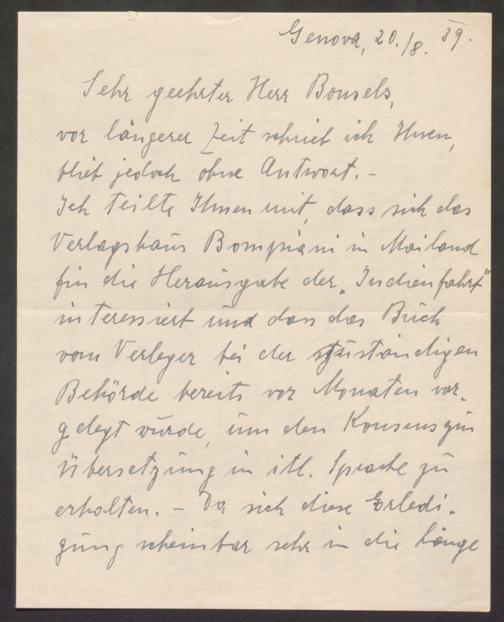 Genova, 20./8. 39.
Sehr geehrter Herr Bonsels,
vor längerer Zeit schrieb ich Ihnen,
blieb jedoch ohne Antwort. –
Ich teilte Ihnen mit, dass sich das
Verlagshaus Bompiani in Mailand
für die Herausgabe der „Indienfahrt"
interessiert und dass das Buch
vom Verleger bei der zuständigen
Behörde bereits vor Monaten vor-
gelegt wurde, um den Konsens zur
Übersetzung in itl. Sprache zu
erhalten. – Da sich diese Erledi-
gung scheinbar sehr in die Länge